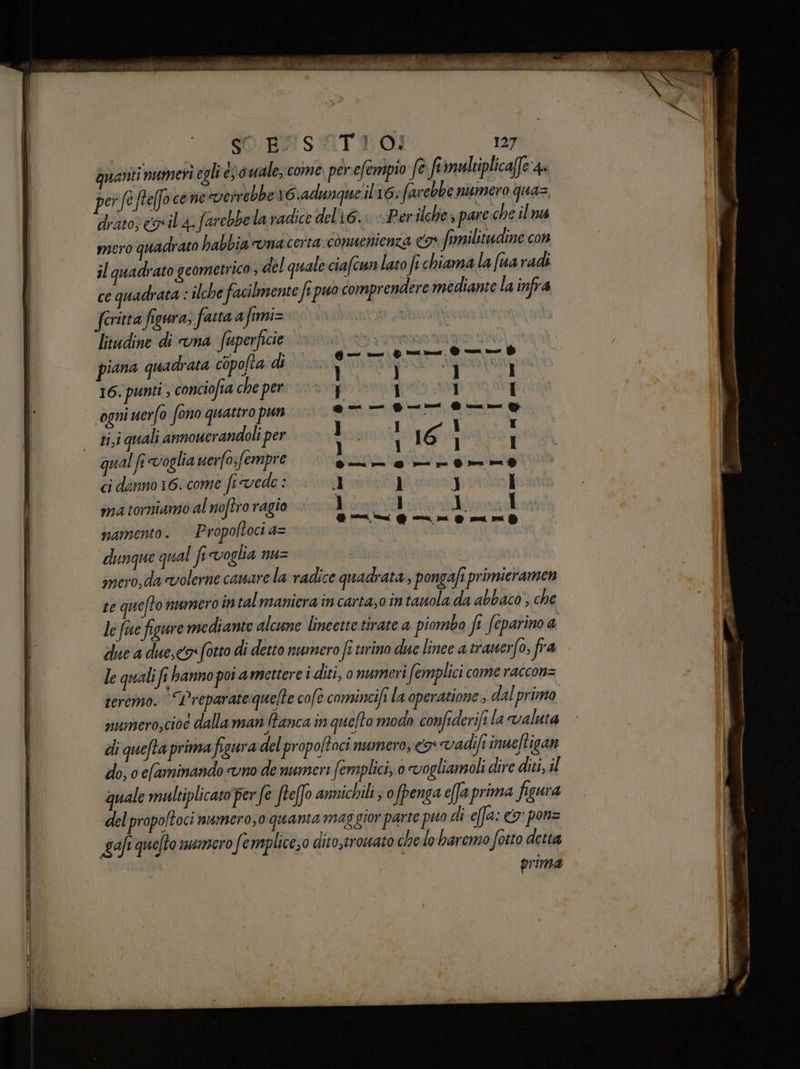 SESTO. 127
quanti numeri egli è, ouale, come per eſempio ſe ſi multiplicaſſe 4.
per ſe ſteſſo ce ne verrebbe 16. adunque il 16. ſarebbe numero qua=
drato, & il 4. ſarebbe la radice del 16. Per ilche, pare che il nu
mero quadrato habbia vna certa conuenienza & ſimilitudine con
il quadrato geometrico, del quale ciaſcun lato ſi chiama la ſua radi
ce quadrata: ilche facilmente ſi puo comprendere mediante la infra
ſcritta figura, fatta a ſimi=
litudine di vna ſuperficie
piana quadrata cōpoſta di
16. punti, concioſia che per
ogni uerſo ſono quattro pun
ti, i quali annouerandoli per
16
qual ſi voglia uerſo, ſempre
ci danno 16. come ſi vede:
ma torniamo al noſtro ragio
namento. Propoſtoci a=
dunque qual ſi voglia nu=
mero, da volerne cauare la radice quadrata, pongaſi primieramen
te queſto numero in tal maniera in carta, o in tauola da abbaco, che
le ſue figure mediante alcune lineette tirate a piombo ſi ſeparino a
due a due, & ſotto di detto numero ſi tirino due linee a trauerſo, fra
le quali ſi hanno poi a mettere i diti, o numeri ſemplici come raccon=
teremo. Preparate queſte coſe cominciſi la operatione, dal primo
numero, cioè dalla man ſtanca in queſto modo conſideriſi la valuta
di queſta prima figura del propoſtoci numero, & vadiſi inueſtigan
do, o eſaminando vno de numeri ſemplici, o vogliamoli dire diti, il
quale multiplicato per ſe ſteſſo annichili, o ſpenga eſſa prima figura
del propoſtoci numero, o quanta maggior parte puo di eſſa: & pon=
gaſi queſto numero ſemplice, o dito, trouato che lo haremo ſotto detta
prima